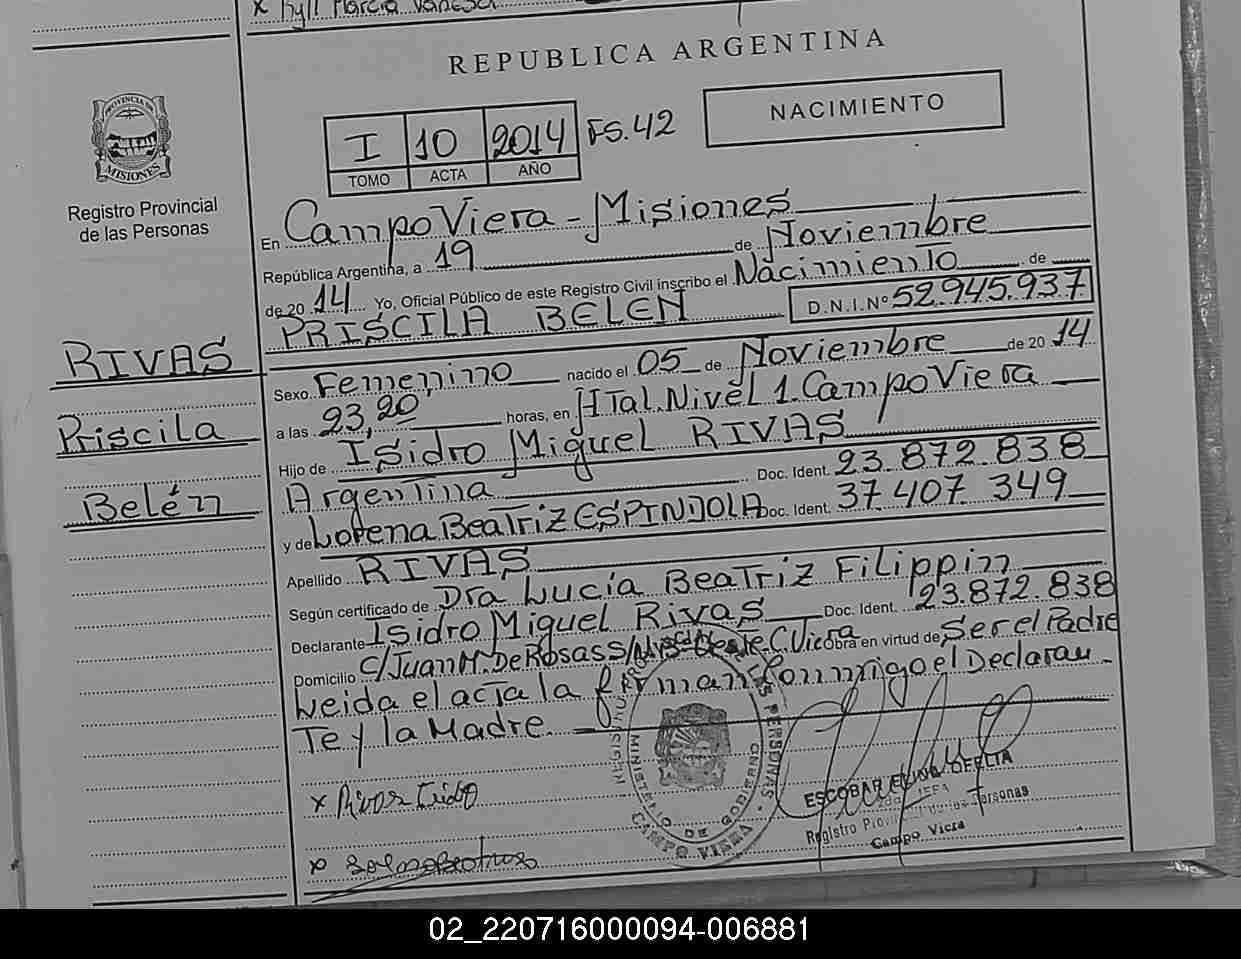 x Kyll Marcia Vanesa
REPUBLICA ARGENTINA
PROVINCIA DE
MISIONES
Registro Provincial
de las Personas
I 10 2014 FS.42
TOMO ACTA AÑO
NACIMIENTO
En Campo Viera - Misiones
República Argentina, a 19 de Noviembre
de 20 14 Yo, Oficial Público de este Registro Civil inscribo el Nacimiento de
PRISCILA BELEN D.N.I.Nº 52.945.937
RIVAS
Priscila
Belén
Sexo Femenino nacido el 05 de Noviembre de 20 14
a las 23,20' horas, en HTal. Nivel 1. Campo Viera
Hijo de Isidro Miguel RIVAS
Argentina Doc. Ident. 23.872.838
y de Lorena BeaTriz ESPINDOLA Doc. Ident. 37407 349
Apellido RIVAS
Según certificado de Dra Lucía BeaTriz Filippin
Declarante Isidro Miguel Rivas Doc. Ident. 23.872.838
Domicilio C/Juan M. De Rosas S/N C. Viera obra en virtud de Ser el Padre
Leida el acta la firman Conmigo el Declaran
Te y la Madre.
x Rivas Isidro
x
MINISTERIO DE GOBIERNO
CAMPO VIERA
ESCOBAR DELIA
JEFA
Registro Provincial de las Personas
Campo Viera
02_220716000094-006881